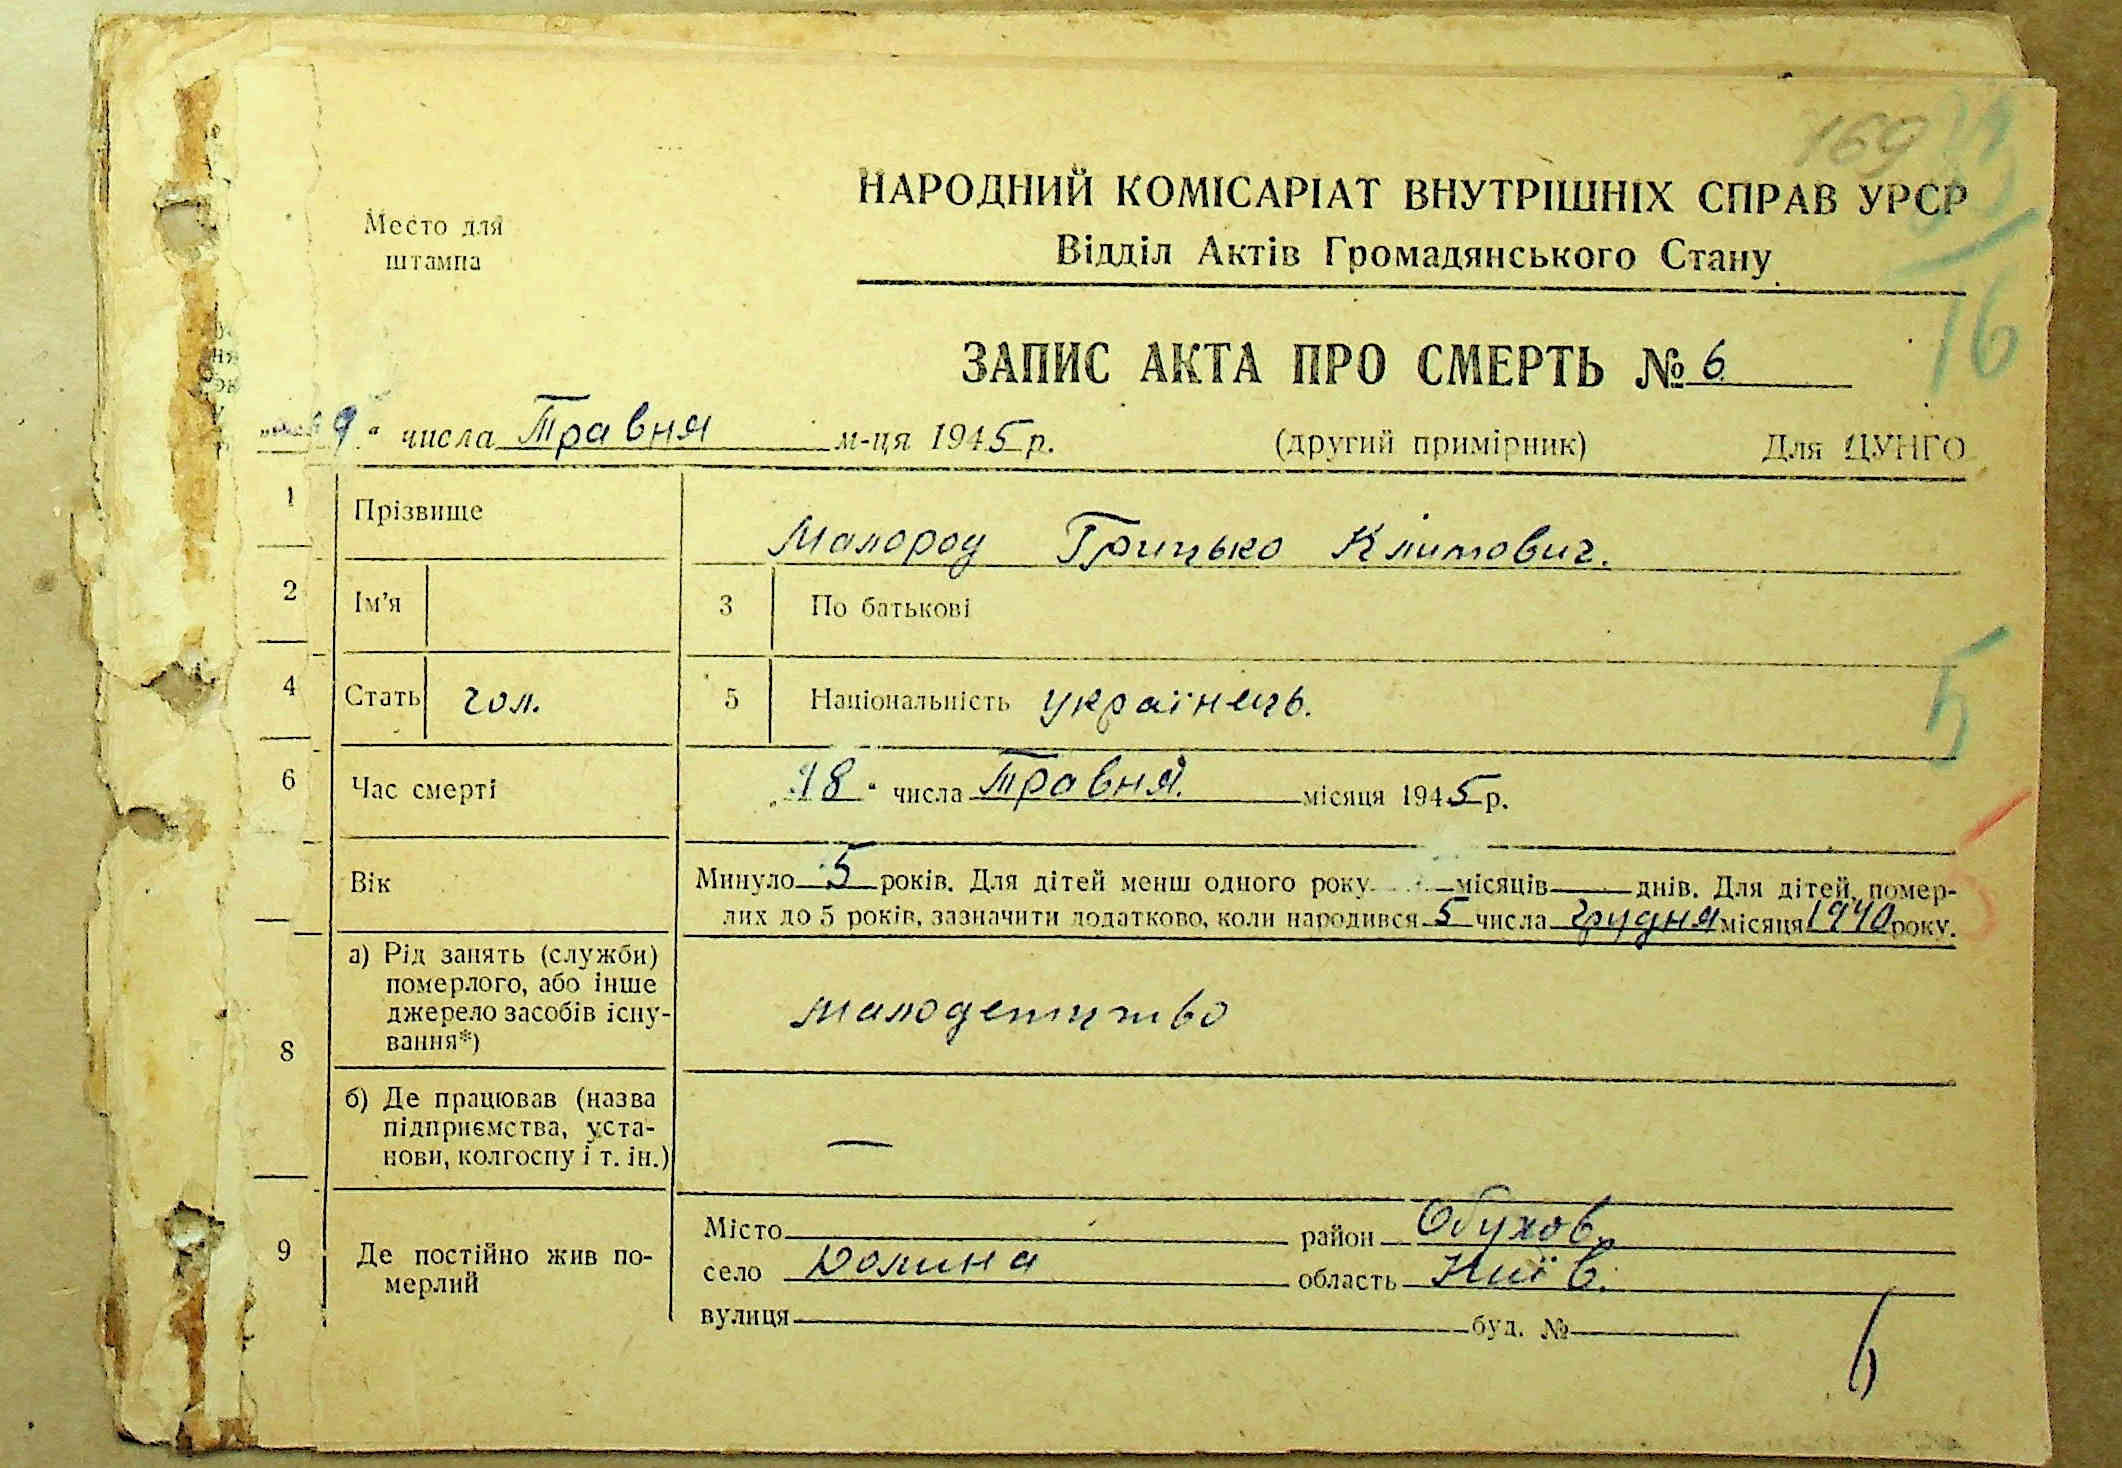 169
НАРОДНИЙ КОМІСАРІАТ ВНУТРІШНІХ СПРАВ УРСР
Место для
штампа
Відділ Актів Громадянського Стану
16
ЗАПИС АКТА ПРО СМЕРТЬ № 6
9 " числа Травня м-ця 1945 р. (другий примірник) Для ЦУНГО
1 Прізвище Малород Грицько Климович.
2 Ім'я 3 По батькові
4 Стать чол. 5 Національність українець.
6 Час смерті „18" числа Травня. місяця 1945 р.
Вік Минуло 5 років. Для дітей менш одного року місяців днів. Для дітей, помер-
лих до 5 років, зазначити додатково, коли народився 5 числа грудня місяця 1940 року.
8 а) Рід занять (служби)
померлого, або інше
джерело засобів існу-
вання*)
малодетство
б) Де працював (назва
підприємства, уста-
нови, колгоспу і т. ін.)
—
9 Де постійно жив по-
мерлий
Місто район Обухов.
село Долина область Київ.
вулиця буд. №